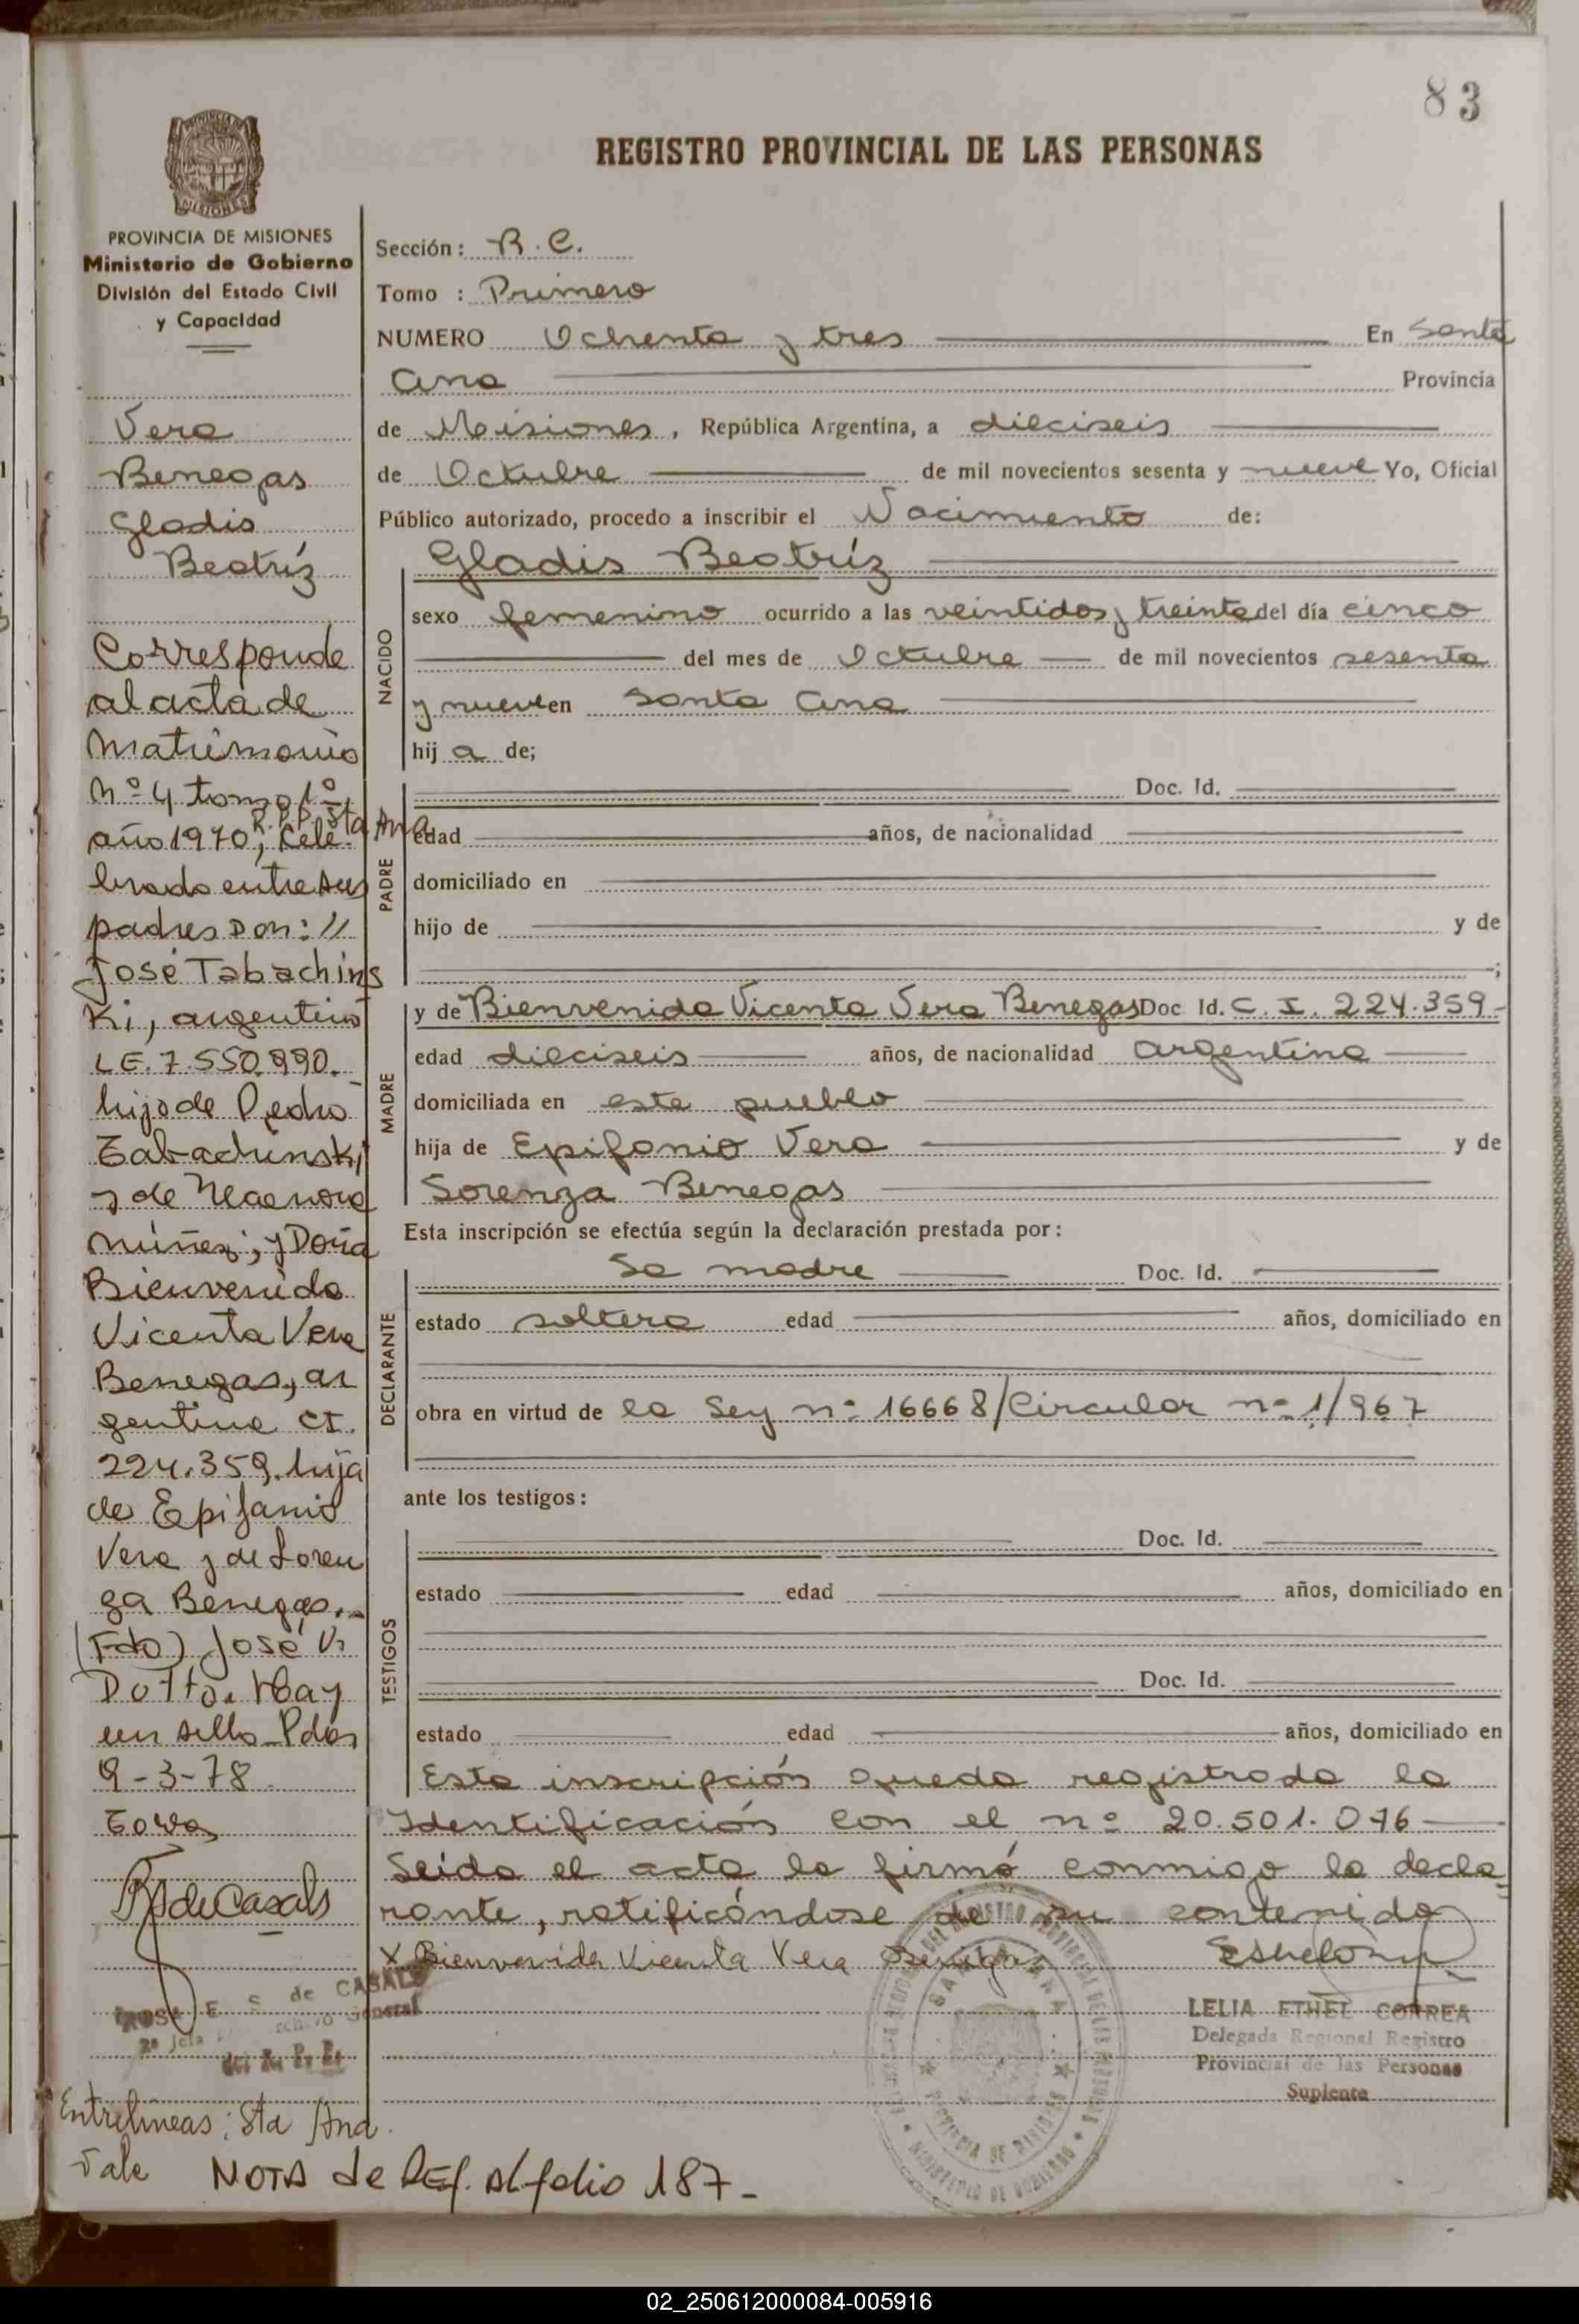 83
REGISTRO PROVINCIAL DE LAS PERSONAS
MISIONES
PROVINCIA DE MISIONES
Ministerio de Gobierno
División del Estado Civil
y Capacidad
Vera
Benegas
Gladis
Beatríz
Corresponde
al acta de
Matrimonio
Nº 4 tomo 1º
R.P.P. Sta Ana
año 1970, Cele-
brado entre sus
padres Don: //
José Tabachins
Ki, argentino
L.E. 7.550.990.
hijo de Pedro
Tabachinski
y de
Núñez; y Doña
Bienvenida
Vicenta Vera
Benegas, ar
gentina CI.
224.359. hija
de Epifanio
Vera y de Loren
za Benegas.-
(Fdo) José V.
Dotto. Hay
un sello. Pdas
9-3-78
RS de Casals
ROSA E. S. de CASALS
2ª Jefa Archivo General
del R. P. P.
Entrelíneas: Sta Ana.
Vale
Sección: R. C.
Tomo : Primero
NUMERO Ochenta y tres En Santa
Ana Provincia
de Misiones, República Argentina, a dieciseis
de Octubre de mil novecientos sesenta y nueve Yo, Oficial
Público autorizado, procedo a inscribir el Nacimiento de:
NACIDO
Gladis Beatríz
sexo femenino ocurrido a las veintidos y treinta del día cinco
del mes de Octubre de mil novecientos sesenta
y nueve en Santa Ana
hij a de;
PADRE
Doc. Id.
edad años, de nacionalidad
domiciliado en
hijo de y de
;
MADRE
y de Bienvenida Vicenta Vera Benegas Doc Id. C. I. 224.359-
edad dieciseis años, de nacionalidad argentina
domiciliada en este pueblo
hija de Epifanio Vera y de
Lorenza Benegas
Esta inscripción se efectúa según la declaración prestada por:
DECLARANTE
La madre Doc. Id.
estado soltera edad años, domiciliado en
obra en virtud de la Ley nº 16668/Circular nº 1/967
ante los testigos:
TESTIGOS
Doc. Id.
estado edad años, domiciliado en
Doc. Id.
estado edad años, domiciliado en
Esta inscripción queda registrada la
Identificación con el nº 20.501.076
Leída el acta la firmó conmigo la decla-
rante, ratificándose de su contenido
X Bienvenida Vicenta Vera Benegas
LELIA ETHEL CORREA
Delegada Regional Registro
Provincial de las Personas
Suplente
SANTA ANA
PROVINCIA DE MISIONES
MINISTERIO DE GOBIERNO
NOTA de REF. al folio 187-
02_250612000084-005916